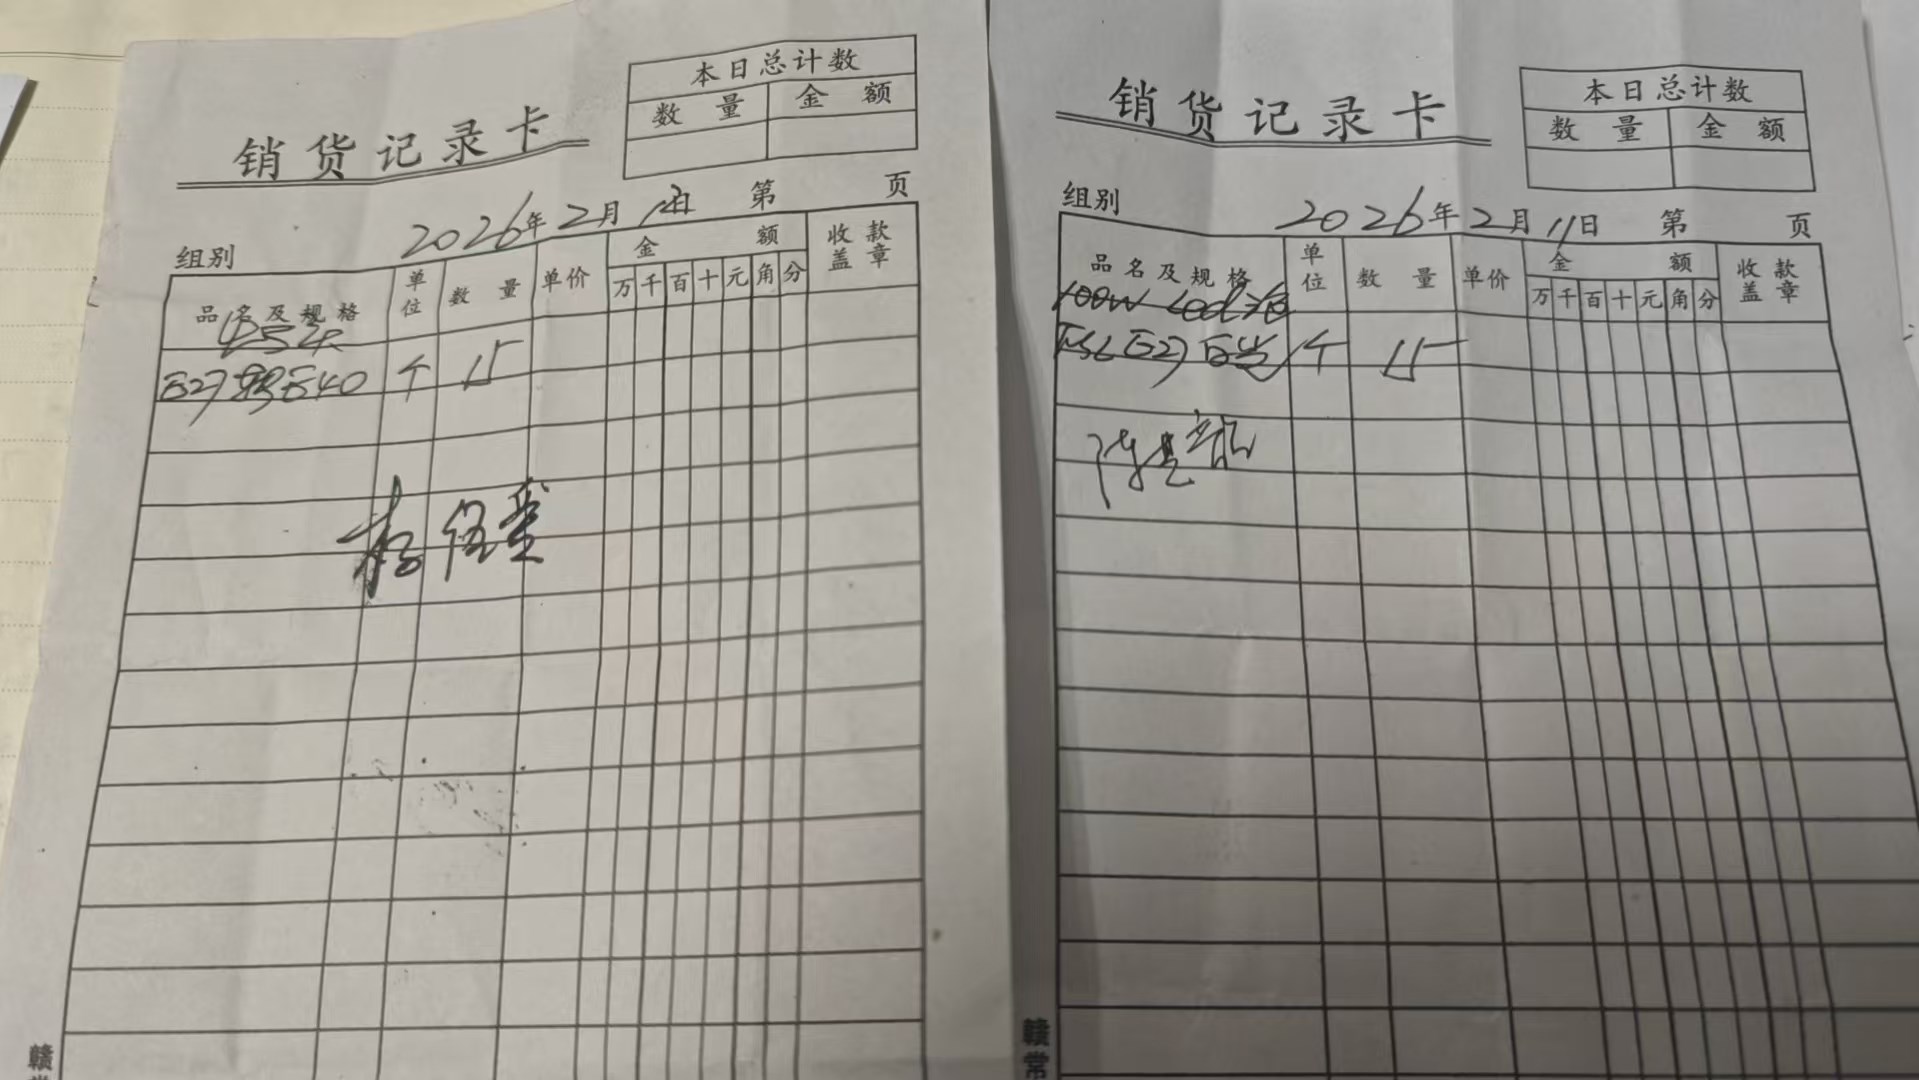 本日总计数
数 量 金 额
销货记录卡
组别 2026年2月 日 第 页
品名及规格 单位 数 量 单价 金 额 收款盖章
万千百十元角分
E27 E40 个 15
赣
本日总计数
数 量 金 额
销货记录卡
组别 2026年2月11日 第 页
品名及规格 单位 数 量 单价 金 额 收款盖章
万千百十元角分
100W Led
FSL E27 个 15
赣常